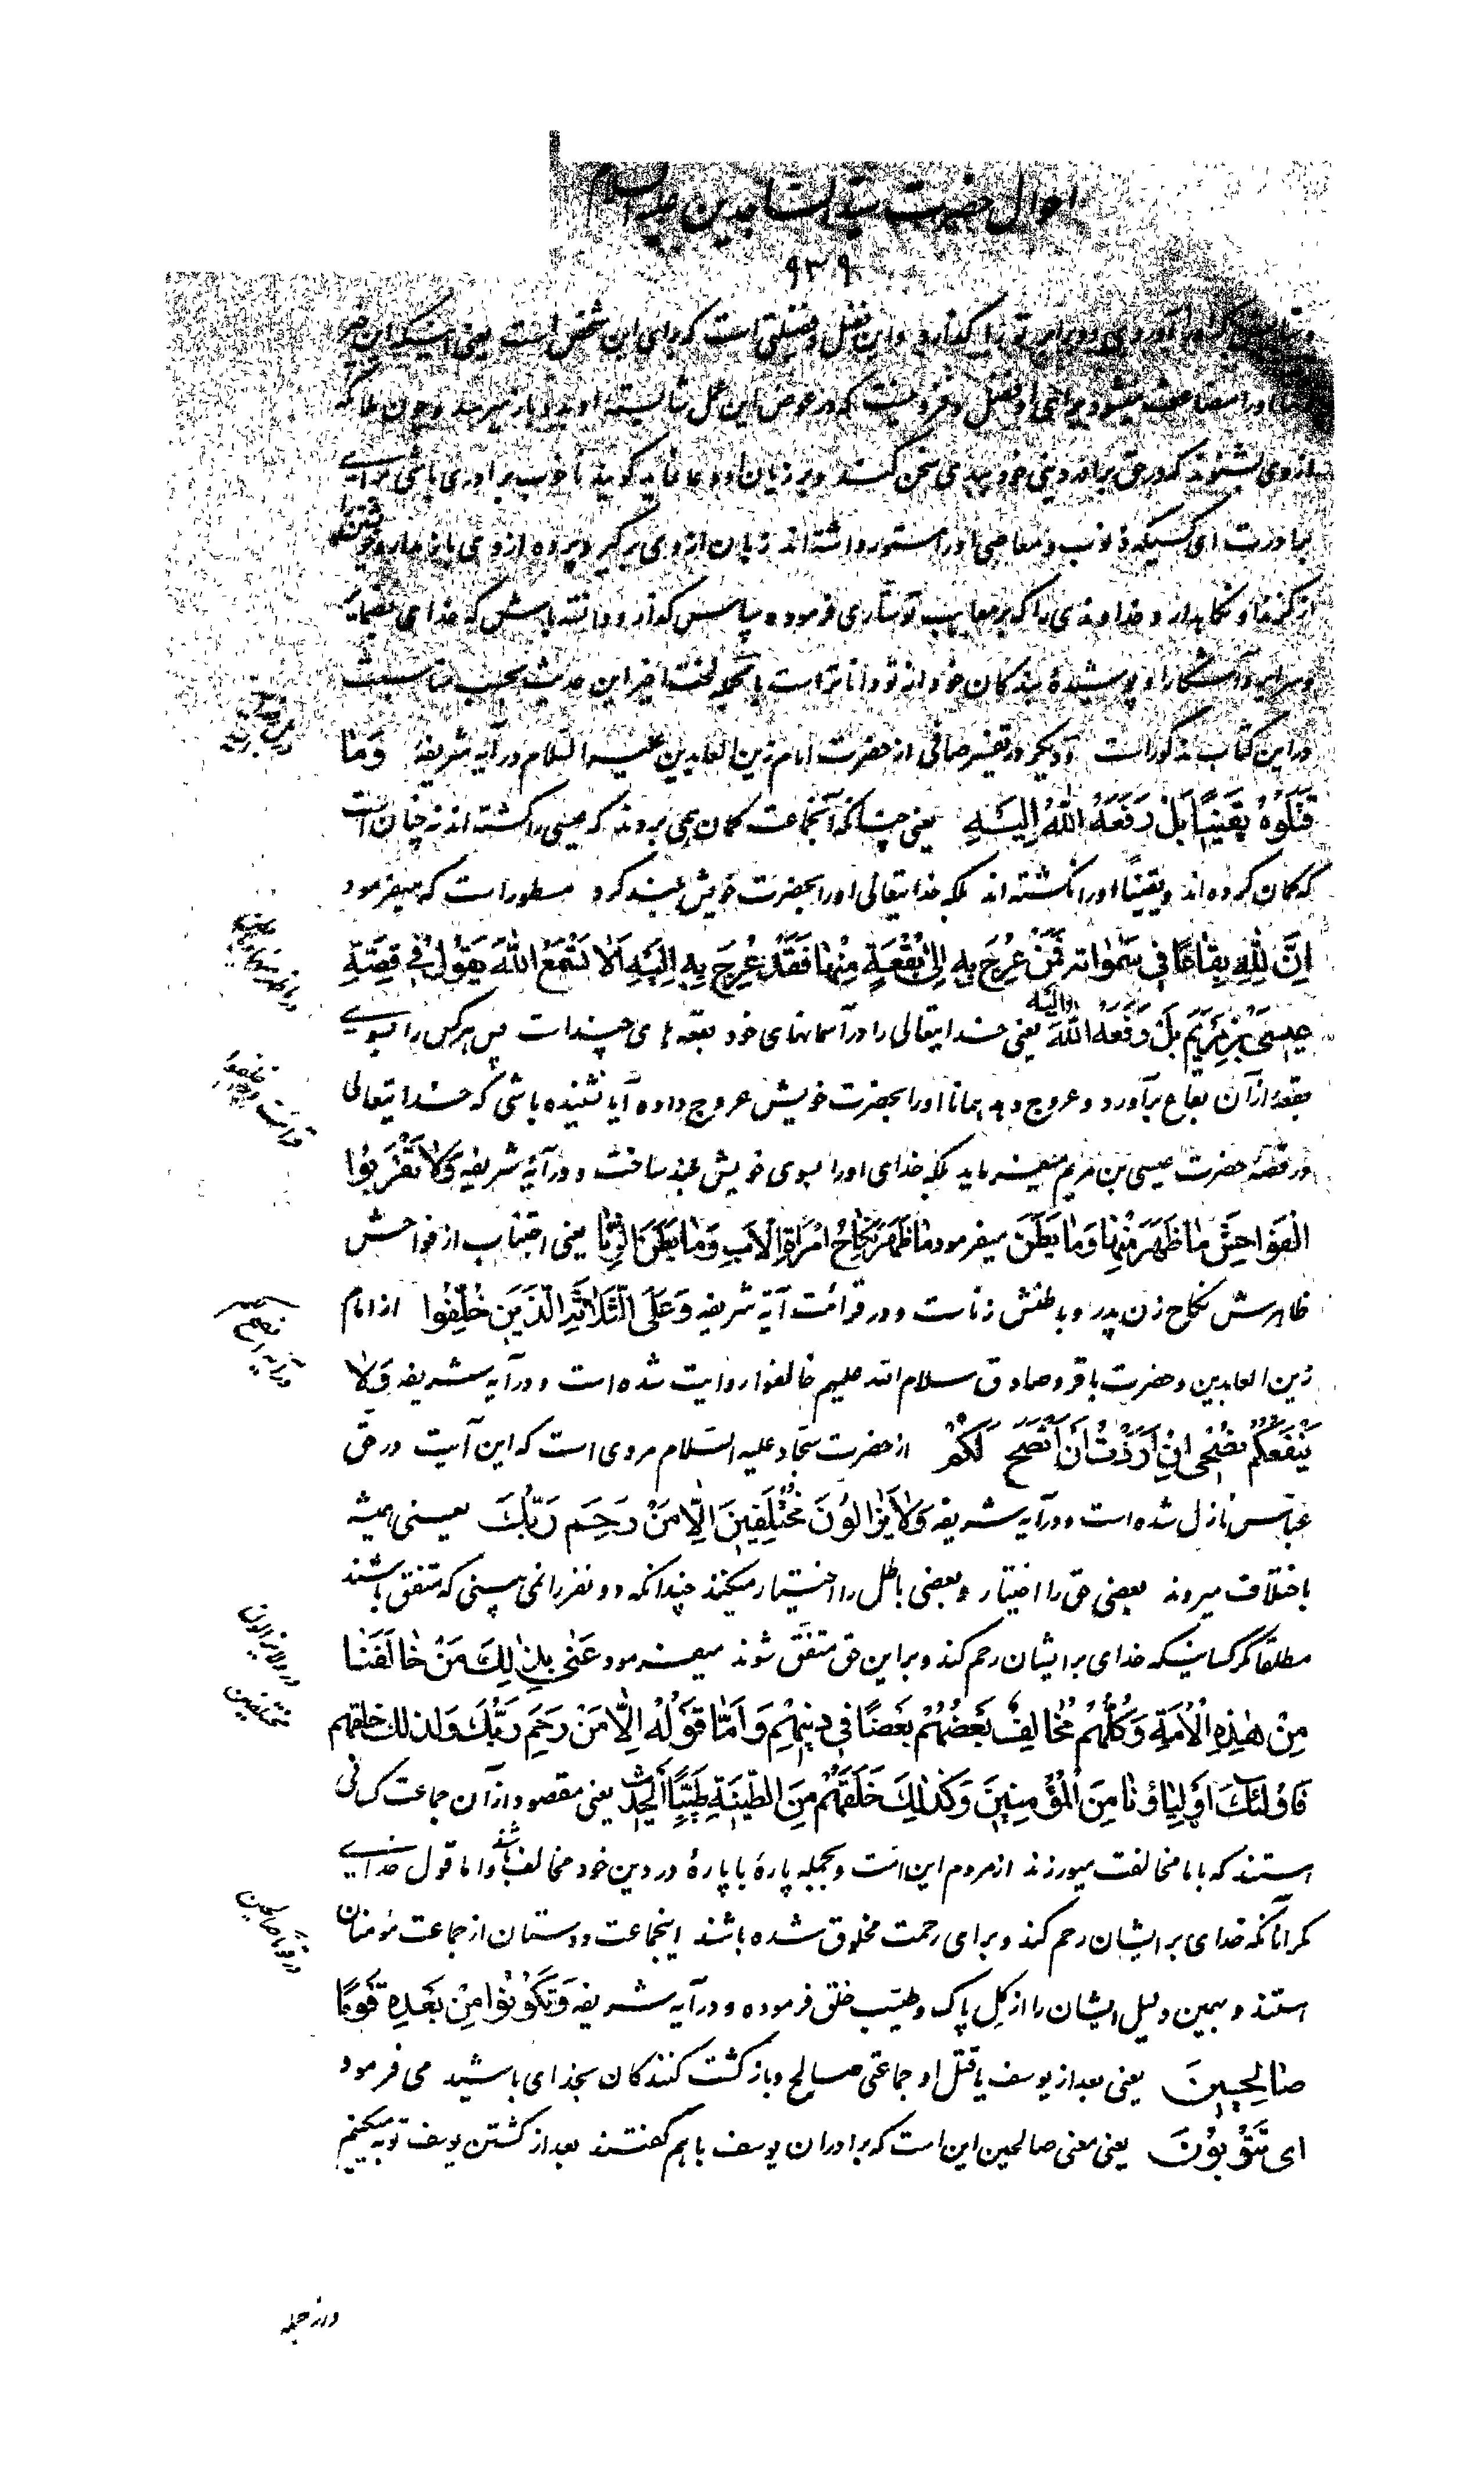 احوال حضرت سیّد السّاجدین علیه السلام
۹۳۹
این فضل و فضیلتی است که برای این شخص است یعنی اینکه این خیر
او را مضاعف میشود برای او فضل و فزونیست که در عوض این عمل شایسته او بدو باز میرسد و چون ملائکه
از وی بشنوند که در حق برادر دینی خود ببدی سخن کند و بر زیان او دعا نماید گویند ناخوب برادری باشی برای
برادرت ای کسیکه ذنوب و معاصی او را مستور داشته‌اند زبان از وی برگیر و پرده از وی باز مدار و خویشتن را
از گزند او نگاهدار و خداوندی را که بر معایب تو ستاری فرموده سپاس گذار و دانسته باش که خدای بضمایر
و سرایر و آشکار او پوشیدهٔ بندگان خود از تو داناتر است بالجمله لخت اخیر این حدیث بحسب مناسبت
در این کتاب مذکور است و دیگر در تفسیر صافی از حضرت امام زین العابدین علیه السّلام در آیه شریفه وَمَا
قَتَلُوهُ يَقيناً بَلْ رَفَعَهُ اللّٰهُ اِلَيْهِ یعنی چنانکه آنجماعت گمان همی بردند که عیسی را کشته‌اند نه چنان است
که گمان کرده‌اند و یقیناً او را نکشته‌اند بلکه خدایتعالی او را بحضرت خویش بلند کرد مسطور است که میفرمود
اِنَّ لِلّٰهِ بِقٰاعًا فى سَمٰواتِه فَمَنْ عُرِجَ بِهِ اِلىٰ بُقْعَةٍ مِنْهٰا فَقَدْ عُرِجَ بِهِ اِلَيْهِ اَلاٰ تَسْمَعُ اللّٰهَ يَقُولُ فى قِصَّةِ
عيسَى بْنِ مَرْيَمَ بَلْ رَفَعَهُ اللّٰهُ اِلَيْهِ یعنی خدایتعالی را در آسمانهای خود بقعه‌های چند است پس هرکس را بسوی
بقعهٔ از آن بقاع برآورد و عروج دهد همانا او را بحضرت خویش عروج داده آیا نشنیده باشی که خدایتعالی
در قصّهٔ حضرت عیسی بن مریم میفرماید بلکه خدای او را بسوی خویش بلند ساخت و در آیهٔ شریفه وَلاٰ تَقْرَبُوا
الْفَوٰاحِشَ مٰا ظَهَرَ مِنْهٰا وَمٰا بَطَنَ میفرمود مٰا ظَهَرَ نِكٰاحُ امْرَأَةِ الْاَبِ وَمٰا بَطَنَ الزِّنٰا یعنی اجتناب از فواحش
ظاهرش نکاح زن پدر و باطنش زناست و در قرائت آیهٔ شریفه وَعَلَى الثَّلاٰثَةِ الَّذينَ خُلِّفُوا از امام
زین العابدین و حضرت باقر و صادق سلام الله علیهم خالفوا روایت شده است و در آیه شریفه وَلاٰ
يَنْفَعُكُمْ نُصْحى اِنْ اَرَدْتُ اَنْ اَنْصَحَ لَكُمْ از حضرت سجّاد علیه السّلام مروی است که این آیت در حق
عبّاس نازل شده است و در آیه شریفه وَلاٰ يَزٰالُونَ مُخْتَلِفينَ اِلّاٰ مَنْ رَحِمَ رَبُّكَ یعنی همیشه
باختلاف میروند بعضی حق را اختیار و بعضی باطل را اختیار میکنند چندانکه دو نفر را نمی بینی که متفق باشند
مطلقا مگر کسانیکه خدای بر ایشان رحم کند و بر این حق متفّق شوند میفرمود عَنىٰ بِذٰلِكَ مَنْ خٰالَفَنٰا
مِنْ هٰذِهِ الْاُمَّةِ وَكُلُّهُمْ مُخٰالِفُ بَعْضُهُمْ بَعْضًا فى دينِهِمْ وَاَمّٰا قَوْلُهُ اِلّاٰ مَنْ رَحِمَ رَبُّكَ وَلِذٰلِكَ خَلَقَهُمْ
فَاُولٰئِكَ اَوْلِيٰاؤُنٰا مِنَ الْمُؤْمِنينَ وَكَذٰلِكَ خَلَقَهُمْ مِنَ الطّينَةِ طَيِّبًا الْحَدیث یعنی مقصود از آن جماعت کسانی
استند که با ما مخالفت میورزند از مردم این امّت و بجمله پارهٔ با پارهٔ در دین خود مخالف باشند و اما قول خدای
مگر آنانکه خدای بر ایشان رحم کند و برای رحمت مخلوق شده باشند اینجماعت دوستان از جماعت مؤمنان
استند و بهمین دلیل ایشان را از گل پاک و طیّب خلق فرموده و در آیه شریفه وَتَكُونُوا مِنْ بَعْدِهِ قَوْمًا
صٰالِحينَ یعنی بعد از یوسف یا قتل او جماعتی صالح و بازگشت کنندگان بخدای باشید می فرمود
ای تَتُوبُونَ یعنی معنی صالحین این است که برادران یوسف با هم گفتند بعد از کشتن یوسف توبه میکنیم
در ولایزالون
مختلفین
در قوما صالحین
در ترجمه